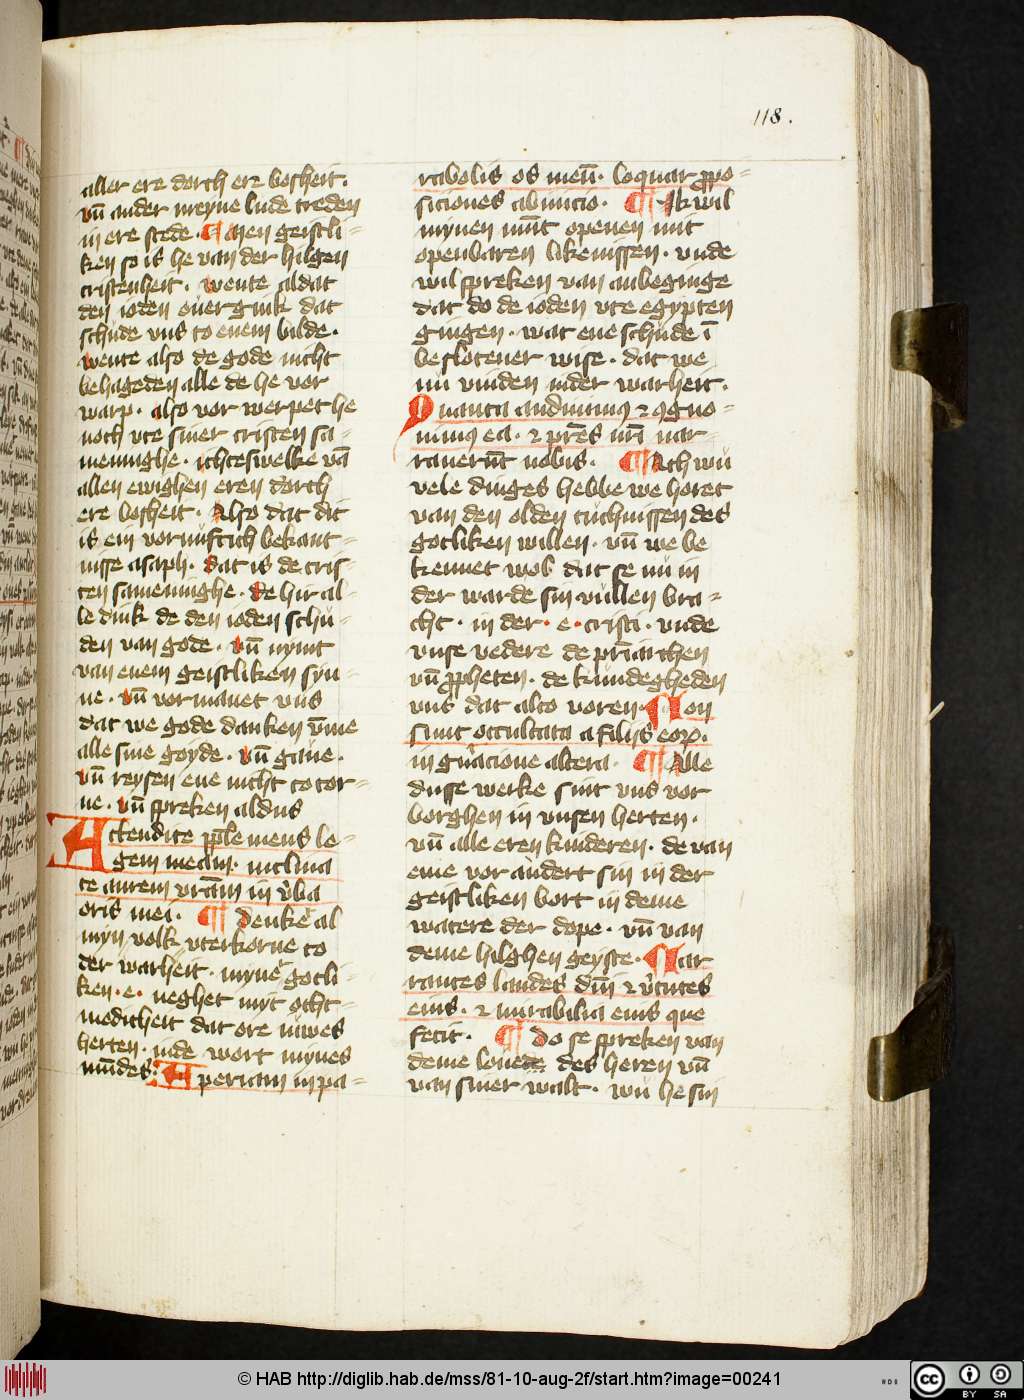 118.
aller ere dorch ere bosheit.
vn̄ ander meyne lude treden
in ere stede. ¶ Men geistli-
ken so is he van der hilgen
cristenheit. wente aldat
den ioden ouergink dat
schude vns to enem bilde.
wente also de gode nicht
behageden alle de he vor
warp. also vor werpet he
noch vte siner cristen sa-
meninghe. ichteswelke vā
allen ewighen eren dorch
ere bosheit. Also dat dit
is ein vornuftich bekant-
nisse asaph. dat is de cris-
ten sameninghe. de hir al-
le dink de den ioden schu-
den van gode. vn̄ nymt
van enem geistliken syn-
ne. vn̄ vormanet vns
dat we gode danken v̄me
alle sine goyde. vn̄ gaue.
vn̄ reysen ene nicht to tor-
ne. vn̄ spreken aldus
Attendite pple meus le-
gem meam. inclina
te aurem vrām in v̓ba
oris mei. ¶ Denke al
myn volk vterkorne to
der warheit. myne gotli-
ken. e. neghet myt otht-
medicheit dat ore uwes
herten. inde wort mynes
mūdes. Aperiam in pa-
rabolis os meū. loquar ppo-
siciones ab inicio. ¶ Ik wil
mynen mūt openen mit
openbaren likenissen. vnde
wil spreken van anbeginge
dat do de ioden vte egypten
gingen. wat ene schude ī
beslotener wise. dat we
nu vinden inder warheit.
Quanta audiuimꝯ ⁊ ꝯgno-
uimꝯ ea. ⁊ pr̄es nr̄i nar-
rauerūt nobis. ¶ Ach wu
vele dinges hebbe we horet
van den olden tuchnissen des
gotliken willen. vn̄ we be
kennet wol dat se nu in
der warde sin vullen bra-
cht. in der. e. cristi. vnde
vnse vedere de pr̄iarchen
vn̄ ppheten. de kundegheden
vns dat alto voren. Non
sunt occultata a filijs eoꝝ.
in gn̄acione altera. ¶ Alle
dusse werke sint vns vor
borghen in vnsen herten.
vn̄ alle eren kinderen. de van
eme vor andert sin in der
geistliken bort in deme
watere der dope. vn̄ van
deme hilghen geyste. Nar
rantes laudes dn̄i ⁊ v̓tutes
eius. ⁊ mirabilia eius que
fecit. ¶ Do se spreken van
deme loue des heren vn̄
van siner walt. wu he sin
© HAB http://diglib.hab.de/mss/81-10-aug-2f/start.htm?image=00241
HAB
CC BY SA